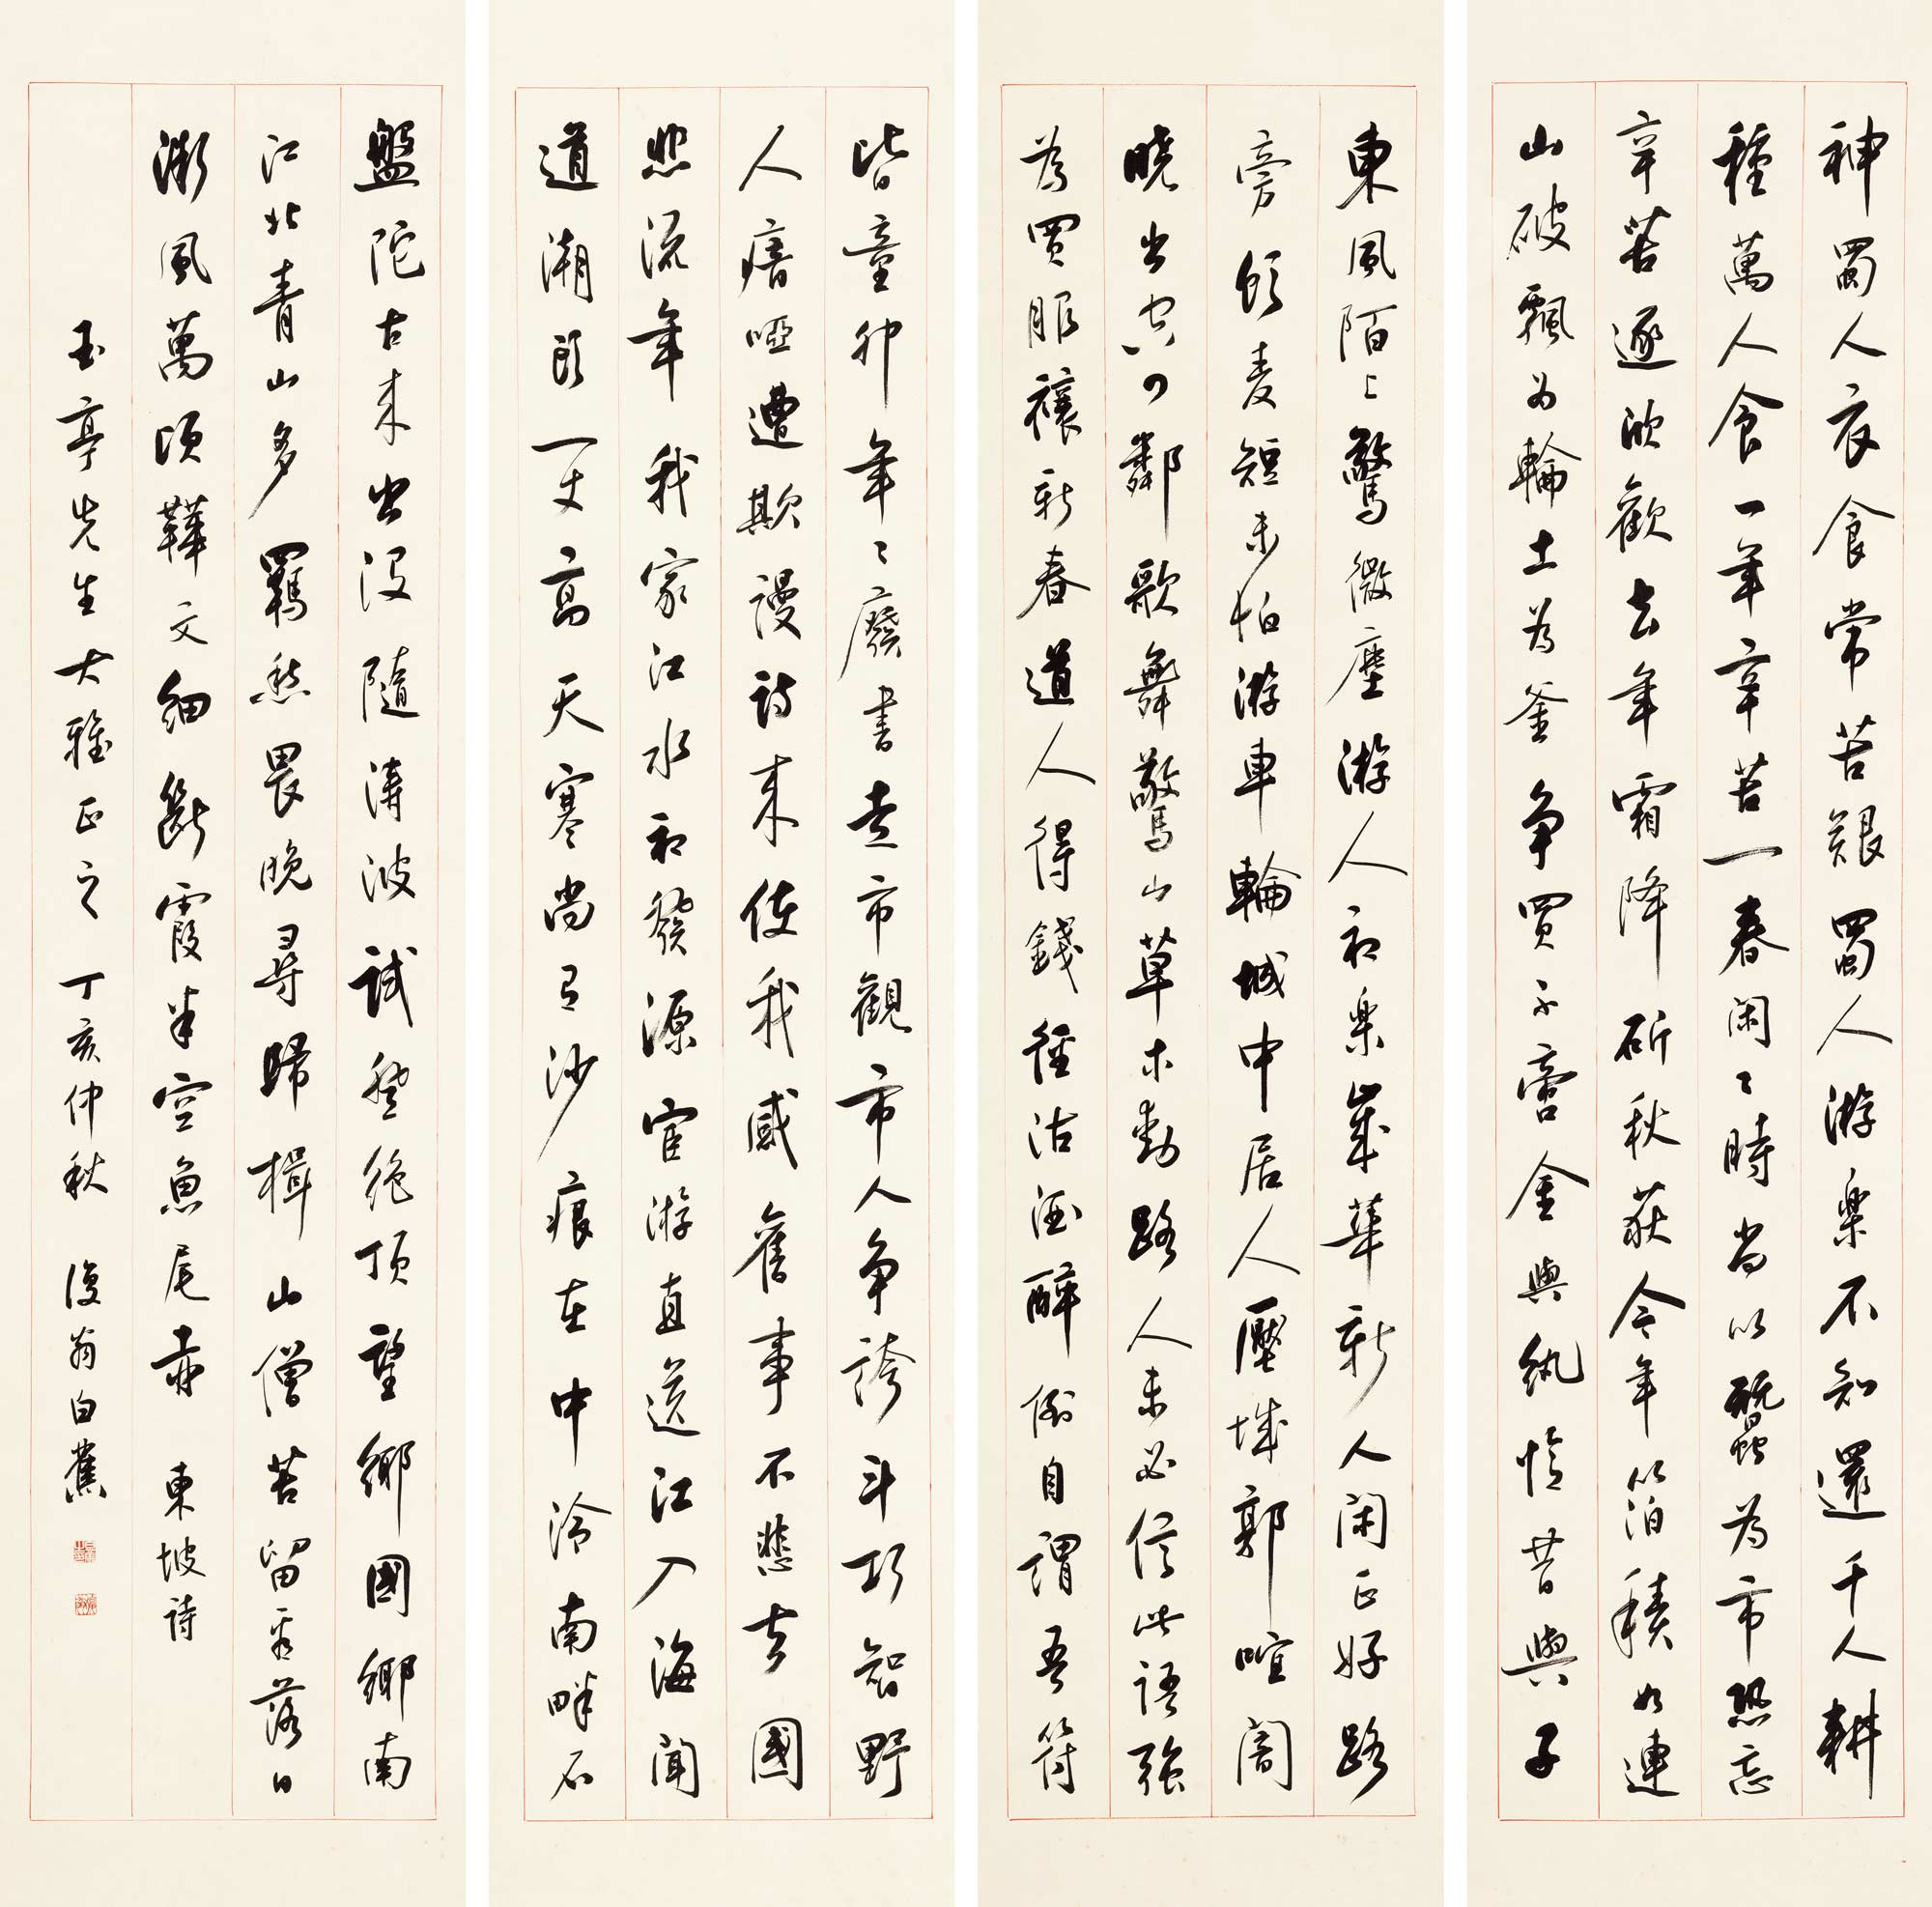 神蜀人衣食常苦艱蜀人游樂不知還千人耕
種萬人食一年辛苦一春閑〻時尚以蠶為市恐忘
辛苦逐欣歡去年霜降斫秋荻今年箔積如連
山破瓢為輪土為釜爭買不啻金與紈憶昔與子
東風陌上驚微塵游人初樂歲華新人閑正好路
旁飲麥短未怕游車輪城中居人壓城郭喧闐
曉出空四鄰歌舞驚山草木動路人未必信此語強
為買服禳新春道人得錢徑沽酒醉倒自謂吾符
皆童丱年〻廢書走市觀市人爭誇斗巧智野
人瘖啞遭欺謾詩來使我感舊事不悲去國
悲流年我家江水初發源宦游直送江入海聞
道潮頭一丈高天寒尚有沙痕在中泠南畔石
盤陀古來出沒隨濤波試登絕頂望鄉國鄉南
江北青山多羈愁畏晚尋歸楫山僧苦留看落日
微風萬頃鞾文細斷霞半空魚尾赤 東坡詩
玉亭先生大雅正之 丁亥仲秋 復翁白蕉